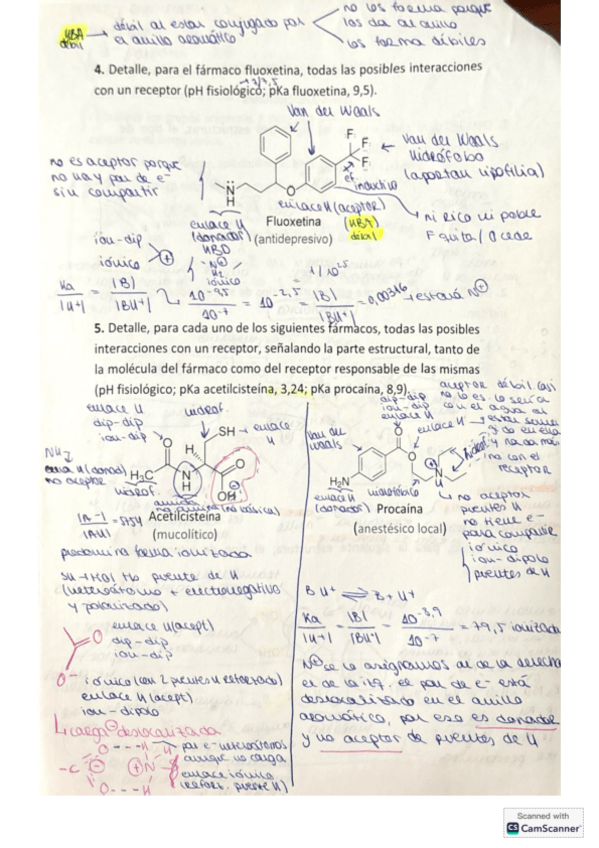 HBA débil → débil al estar conjugado por el anillo aromático
no los forma porque los da al anillo
los forma débiles
4. Detalle, para el fármaco fluoxetina, todas las posibles interacciones
con un receptor (pH fisiológico; pKa fluoxetina, 9,5).
Van der Waals
F
F
F
← Van der Waals
hidrófobo
(aportan lipofilia)
no es aceptor porque
no hay par de e-
sin compartir
N
H
O
ef. inductivo
enlace H (aceptor)
(HBA)
débil
ni rico ni pobre
F quita / O cede
enlace H
(donador)
HBD
Fluoxetina
(antidepresivo)
ion-dip
iónico
+
N
H2
iónico
Ka/|H+| = |B|/|BH+|
10-9,5/10-7 = 10-2,5 = |B|/|BH+| = 0,00316 → estará N+
5. Detalle, para cada uno de los siguientes fármacos, todas las posibles
interacciones con un receptor, señalando la parte estructural, tanto de
la molécula del fármaco como del receptor responsable de las mismas
(pH fisiológico; pKa acetilcisteína, 3,24; pKa procaína, 8,9).
enlace H
dip-dip
ion-dip
hidrof.
SH → enlace H
O
H
O
OH
H3C
N
H
hidrof.
amida
Acetilcisteína
(mucolítico)
predomina forma ionizada
SH → HO! No puente de H
(heteroátomo + electronegativo
y polarizado)
O
enlace H (acept)
dip-dip
ion-dip
O-
iónico (con 2 puentes H reforzado)
enlace H (acept)
ion-dipolo
carga - deslocalizada
-C
O---H
N
O---H
par e- heteroátomos
aunque no carga
enlace iónico
(refort. puente H)
aceptor débil
dip-dip
ion-dip
enlace H
Van der
Waals
O
enlace H
O
N
H
H2N
enlace H
(donador)
hidrófobo
Procaína
(anestésico local)
no con el
receptor
no aceptor
puentes H
no tiene e-
para compartir
iónico
ion-dipolo
puentes de H
BH+ ⇌ B + H+
Ka/|H+| = |B|/|BH+| = 10-8,9/10-7 = 79,5 ionizada
N+ se lo asignamos al de la derecha
el de la izq. el par de e- está
deslocalizado en el anillo
aromático, por eso es donador
y no aceptor de puentes de H
Scanned with
CS CamScanner